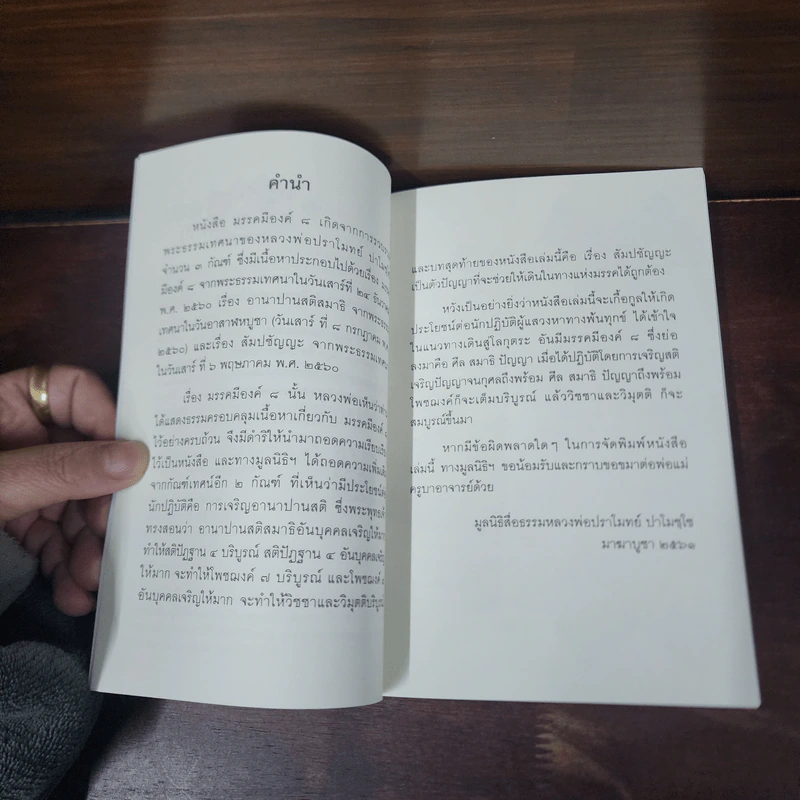 คำนำ
หนังสือ มรรคมีองค์ ๘ เกิดจากการ
พระธรรมเทศนาของหลวงพ่อปราโมทย์
จำนวน ๓ กัณฑ์ ซึ่งมีเนื้อหาประกอบไปด้วยเรื่อง
มีองค์ ๘ จากพระธรรมเทศนาในวันเสาร์ที่ ๒๔
พ.ศ. ๒๕๖๐ เรื่อง อานาปานสติสมาธิ จาก
เทศนาในวันอาสาฬหบูชา (วันเสาร์ ที่ ๘ กรกฎาคม
๒๕๖๐) และเรื่อง สัมปชัญญะ จากพระธรรมเทศนา
ในวันเสาร์ ที่ ๖ พฤษภาคม พ.ศ. ๒๕๖๐
เรื่อง มรรคมีองค์ ๘ นั้น หลวงพ่อเห็นว่า
ได้แสดงธรรมครอบคลุมเนื้อหาเกี่ยวกับ มรรคมีองค์
ไว้อย่างครบถ้วน จึงมีดำริให้นำมาถอดความเรียบเรียง
ไว้เป็นหนังสือ และทางมูลนิธิฯ ได้ถอดความเพิ่มเติม
จากกัณฑ์เทศน์อีก ๒ กัณฑ์ ที่เห็นว่ามีประโยชน์
นักปฏิบัติคือ การเจริญอานาปานสติ ซึ่งพระพุทธ
ทรงสอนว่า อานาปานสติสมาธิอันบุคคลเจริญให้มาก
ทำให้สติปัฏฐาน ๔ บริบูรณ์ สติปัฏฐาน ๔ อันบุคคลเจริญ
ให้มาก จะทำให้โพชฌงค์ ๗ บริบูรณ์ และโพชฌงค์
อันบุคคลเจริญให้มาก จะทำให้วิชชาและวิมุตติ
และบทสุดท้ายของหนังสือเล่มนี้คือ เรื่อง สัมปชัญญะ
เป็นตัวปัญญาที่จะช่วยให้เดินในทางแห่งมรรคได้ถูกต้อง
หวังเป็นอย่างยิ่งว่าหนังสือเล่มนี้จะเกื้อกูลให้เกิด
ประโยชน์ต่อนักปฏิบัติผู้แสวงหาทางพ้นทุกข์ ได้เข้าใจ
ในแนวทางเดินสู่โลกุตระ อันมีมรรคมีองค์ ๘ ซึ่งย่อ
ลงมาคือ ศีล สมาธิ ปัญญา เมื่อได้ปฏิบัติโดยการเจริญสติ
เจริญปัญญาจนกุศลถึงพร้อม ศีล สมาธิ ปัญญาถึงพร้อม
โพชฌงค์ก็จะเต็มบริบูรณ์ แล้ววิชชาและวิมุตติ ก็จะ
สมบูรณ์ขึ้นมา
หากมีข้อผิดพลาดใดๆ ในการจัดพิมพ์หนังสือ
เล่มนี้ ทางมูลนิธิฯ ขอน้อมรับและกราบขอขมาต่อพ่อแม่
ครูบาอาจารย์ด้วย
มูลนิธิสื่อธรรมหลวงพ่อปราโมทย์ ปาโมชฺโช
มาฆบูชา ๒๕๖๑